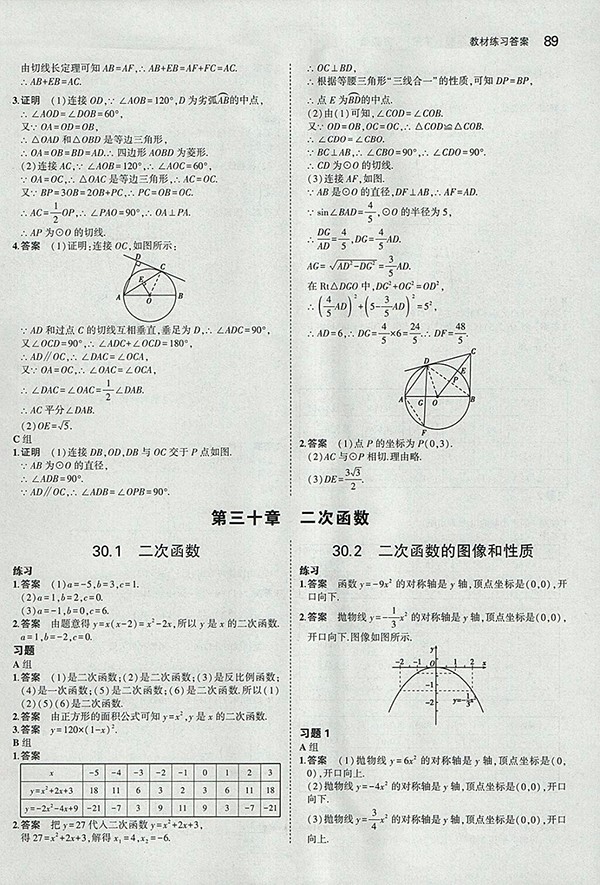 教材练习答案 89
由切线长定理可知 AB=AF,∴AB+EB=AF+FC=AC.
∴AB+EB=AC.
3.证明 (1)连接 OD,∵∠AOB=120°,D 为劣弧AB的中点,
∴∠AOD=∠DOB=60°,
又∵OA=OD=OB,
∴△OAD 和△OBD 是等边三角形,
∴OA=OB=BD=AD.∴四边形 AOBD 为菱形.
(2)连接 AC,∵∠AOB=120°,∴∠AOC=60°,
∵OA=OC,∴△OAC 是等边三角形,∴AC=OC.
又∵BP=3OB=2OB+PC,∴PC=OB=OC.
∴AC=1/2OP,∴∠PAO=90°,∴OA⊥PA.
∴AP 为⊙O 的切线.
4.答案 (1)证明:连接 OC,如图所示:
D
C
E
A
O
B
∵AD 和过点 C 的切线互相垂直,垂足为 D,∴∠ADC=90°,
又∠OCD=90°,∴∠ADC+∠OCD=180°,
∴AD∥OC,∴∠DAC=∠OCA,
又∵OA=OC,∴∠OAC=∠OCA,
∴∠DAC=∠OAC=1/2∠DAB.
∴AC 平分∠DAB.
(2)OE=√5.
C 组
1.证明 (1)连接 DB,OD,DB 与 OC 交于 P 点如图.
∵AB 为⊙O 的直径,
∴∠ADB=90°.
∵AD∥OC,∴∠ADB=∠OPB=90°.
∴OC⊥BD,
∴根据等腰三角形“三线合一”的性质,可知 DP=BP,
∴点 E 为BD的中点.
(2)由(1)可知,∠COD=∠COB.
又∵OD=OB,OC=OC,∴△COD≌△COB.
∴∠CDO=∠CBO.
∵BC⊥AB,∴∠CBO=90°,∴∠CDO=90°.
∴CD 为⊙O 的切线.
(3)连接 AF,如图.
∵AB 是⊙O 的直径,DF⊥AB,∴AF=AD.
∵sin∠BAD=4/5,⊙O 的半径为 5,
∴DG/AD=4/5,DG=4/5AD.
AG=√(AD²-DG²)=3/5AD.
在 Rt△DGO 中,DG²+OG²=OD²,
∴(4/5AD)²+(5-3/5AD)²=5²,
∴AD=6,∴DG=4/5×6=24/5.∴DF=48/5.
C
D
E
P
A
G
O
B
F
2.答案 (1)点 P 的坐标为 P(0,3).
(2)AC 与⊙P 相切.理由略.
(3)DE=3√3/2.
第三十章 二次函数
30.1 二次函数
练习
1.答案 (1)a=-5,b=3,c=1.
(2)a=1,b=2,c=0.
(3)a=-1,b=0,c=6.
2.答案 由题意得 y=x(x-2)=x²-2x,所以 y 是 x 的二次函数.
a=1,b=-2,c=0.
习题
A 组
1.答案 (1)是二次函数;(2)是二次函数;(3)是反比例函数;
(4)是一次函数;(5)是二次函数;(6)是二次函数.所以(1)
(2)(5)(6)是二次函数.
2.答案 由正方形的面积公式可知 y=x²,y 是 x 的二次函数.
3.答案 y=120×(1-x)².
B 组
1.答案
x -5 -4 -3 -2 -1 0 1 2 3
y=x²+2x+3 18 11 6 3 2 3 6 11 18
y=-2x²-4x+9 -21 -7 3 9 11 9 3 -7 -21
2.答案 把 y=27 代入二次函数 y=x²+2x+3,
得 27=x²+2x+3,解得 x₁=4,x₂=-6.
30.2 二次函数的图像和性质
练习
1.答案 函数 y=-9x² 的对称轴是 y 轴,顶点坐标是(0,0),开
口向下.
2.答案 抛物线 y=-1/3x² 的对称轴是 y 轴,顶点坐标是(0,0),
开口向下.图像如图所示.
y
-2 -1 0 1 2 x
-1
-2
y=-1/3x²
习题 1
A 组
1.答案 (1)抛物线 y=6x² 的对称轴是 y 轴,顶点坐标是(0,
0),开口向上.
(2)抛物线 y=-4x² 的对称轴是 y 轴,顶点坐标是(0,0),开口
向下.
(3)抛物线 y=3/4x² 的对称轴是 y 轴,顶点坐标是(0,0),开口
向上.